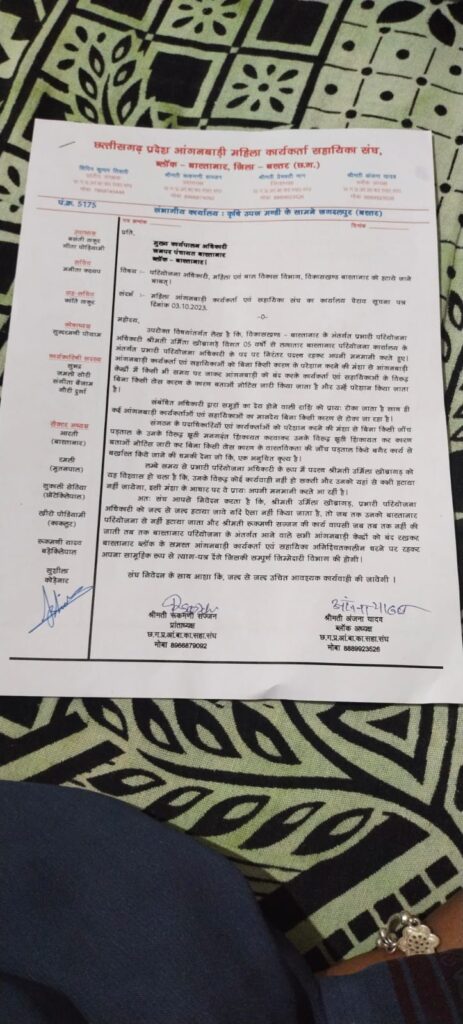 छत्तीसगढ़ प्रदेश आंगनबाड़ी महिला कार्यकर्ता सहायिका संघ,
ब्लॉक - बास्तानार, जिला - बस्तर (छ.ग.)
पं.क्र. 5175
संभागीय कार्यालय : कृषि उपज मण्डी के सामने जगदलपुर (बस्तर)
दिनांक
उपाध्यक्ष
सचिव
सह-सचिव
कोषाध्यक्ष
कार्यकारिणी सदस्य
सेक्टर अध्यक्ष
आरती
(बास्तानार)
सुशीला
कोड़ेनार
प्रति,
मुख्य कार्यपालन अधिकारी
जनपद पंचायत बास्तानार
ब्लॉक - बास्तानार।
विषय :- परियोजना अधिकारी, महिला एवं बाल विकास विभाग, विकासखण्ड बास्तानार को हटाये जाने
बाबत्।
संदर्भ :- महिला आंगनबाड़ी कार्यकर्ता एवं सहायिका संघ का कार्यालय घेराव सूचना पत्र
दिनांक 03.10.2023.
-0-
महोदय,
उपरोक्त विषयांतर्गत लेख है कि, विकासखण्ड - बास्तानार के अंतर्गत प्रभारी परियोजना
अधिकारी श्रीमती उर्मिला खोब्रागड़े विगत 05 वर्षों से लगातार बास्तानार परियोजना कार्यालय के
अंतर्गत प्रभारी परियोजना अधिकारी के पद पर निरंतर पदस्थ रहकर अपनी मनमानी करते हुए।
आंगनबाड़ी कार्यकर्ता एवं सहायिकाओं को बिना किसी कारण के परेशान करने की मंशा से आंगनबाड़ी
केन्द्रों में किसी भी समय पर जाकर आंगनबाड़ी को बंद करके कार्यकर्ता एवं सहायिकाओं के विरूद्ध
बिना किसी ठोस कारण के कारण बताओ नोटिस जारी किया जाता है और उन्हें परेशान किया जाता
है।
संबंधित अधिकारी द्वारा समूहों का देय होने वाली राशि को प्रायः रोका जाता है साथ ही
कई आंगनबाड़ी कार्यकर्ताओं एवं सहायकाओं का मानदेय बिना किसी कारण से रोका जा रहा है।
संगठन के पदाधिकारियों एवं कार्यकर्ताओं को परेशान करने की मंशा से बिना किसी जाँच
पड़ताल के उनके विरूद्ध झूठी मनगढ़ंत शिकायत करवाकर उनके विरूद्ध झूठी शिकायत कर कारण
बताओ नोटिस जारी कर बिना किसी ठोस कारण के वास्तविकता की जाँच पड़ताल किये बगैर कार्य से
बर्खास्त किये जाने की धमकी देना जो कि, एक अनुचित कृत्य है।
लम्बे समय से प्रभारी परियोजना अधिकारी के रूप में पदस्थ श्रीमती उर्मिला खोब्रागड़े को
यह विश्वास हो चला है कि, उनके विरूद्ध कोई कार्यवाही नहीं हो सकती और उनको यहां से कभी हटाया
नहीं जायेगा, इसी मंशा के आधार पर वे प्रायः अपनी मनमानी करते आ रही है।
अतः संघ आपसे निवेदन करता है कि, श्रीमती उर्मिला खोब्रागड़े, प्रभारी परियोजना
अधिकारी को जल्द से जल्द हटाया जावे यदि ऐसा नहीं किया जाता है, तो जब तक उनको बास्तानार
परियोजना से नहीं हटाया जाता और श्रीमती रूकमणी सज्जन की कार्य वापसी जब तब तक नहीं की
जाती तब तक बास्तानार परियोजना के अंतर्गत आने वाले सभी आंगनबाड़ी केन्द्रों को बंद रखकर
बास्तानार ब्लॉक के समस्त आंगनबाड़ी कार्यकर्ता एवं सहायिका अनिश्चितकालीन धरने पर रहकर
अपना सामूहिक रूप से त्याग-पत्र देंगे जिसकी सम्पूर्ण जिम्मेदारी विभाग की होगी।
संघ निवेदन के साथ आशा कि, जल्द से जल्द उचित आवश्यक कार्यवाही की जावेगी ।
श्रीमती रूकमणी सज्जन
प्रांताध्यक्ष
छ.ग.प्र.आं.बा.का.सहा.संघ
मोबा 8966879092
श्रीमती अंजना यादव
ब्लॉक अध्यक्ष
छ.ग.प्र.आं.बा.का.सहा.संघ
मोबा 8889923526